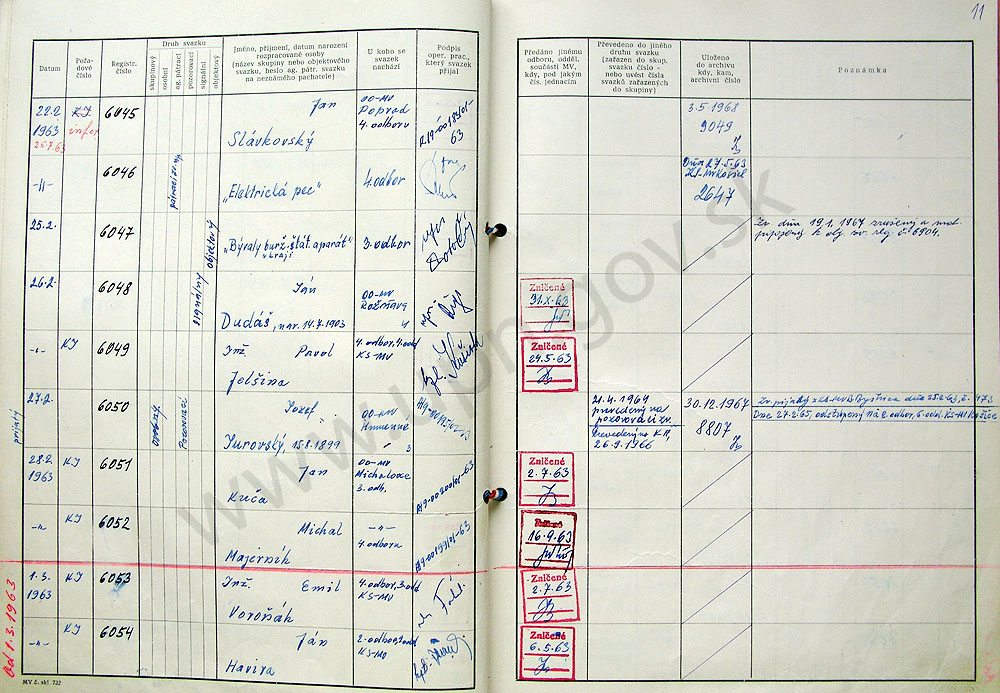 11
Datum
Pořa-
dové
číslo
Registr.
číslo
Druh svazku
skupinový
osobní
ag. pátrací
pozorovací
signální
objektový
Jméno, příjmení, datum narození
rozpracované osoby
(název skupiny nebo objektového
svazku, heslo ag. pátr. svazku
na neznámého pachatele)
U koho se
svazek
nachází
Podpis
oper. prac.,
který svazek
přijal
Předáno jinému
odboru, odděl.
součásti MV,
kdy, pod jakým
čís. jednacím
Převedeno do jiného
druhu svazku
(zařazen do skup.
svazku číslo -
nebo uvést čísla
svazků zařazených
do skupiny)
Uloženo
do archivu
kdy, kam,
archivní číslo
Poznámka
22.2.
1963
25.7.63
KI
infor
6045
Jan
Slávkovský
OO-MV
Poprad
4. odboru
63
3.5.1968
9049
-"-
6046
pátrací
„Elektrická pec"
4. odbor
Dňa 27.5.63
2647
25.2.
6047
objektový
„Bývalý burž. štát. aparát"
v kraji
3. odbor
Zv. dňa 19.1.1967 zrušený a mat.
pripojený k obj. zv. reg. č. 6904.
26.2.
6048
signálny
Ján
Dudáš, nar. 14.7.1903
OO-MV
Rožňava
4
Zničené
31.X.63
-"-
KI
6049
Inž. Pavol
Jelšina
4. odbor, 4. odd
KS-MV
Zničené
24.5.63
prijatý
27.2.
6050
Pozorovací
Jozef
Jurovský, 15.8.1899
OO-MV
Humenné
3
21.4.1964
prevedený na
pozorovací zv.
Prevedený na KR,
26.9.1966
30.12.1967
8807
Zv. prijatý z KS-MV B. Bystrica dňa 25.2.63, č. 473
Dňa 27.2.65, odstúpený na 2. odbor, 6. odd. KS-MV Košice
28.2.
1963
KI
6051
Jan
Kuča
OO-MV
Michalovce
3. odb.
Zničené
2.7.63
-"-
KI
6052
Michal
Majerník
-"-
4. odboru
Zničené
16.9.63
Od 1.3.1963
1.3.
1963
KI
6053
Inž. Emil
Voroňák
4. odbor, 3. odd
KS-MV
Zničené
2.7.63
-"-
KI
6054
Ján
Havira
2. odbor, 1. odd
KS-MV
Zničené
6.5.63
MV č. skl. 732
www.upn.gov.sk